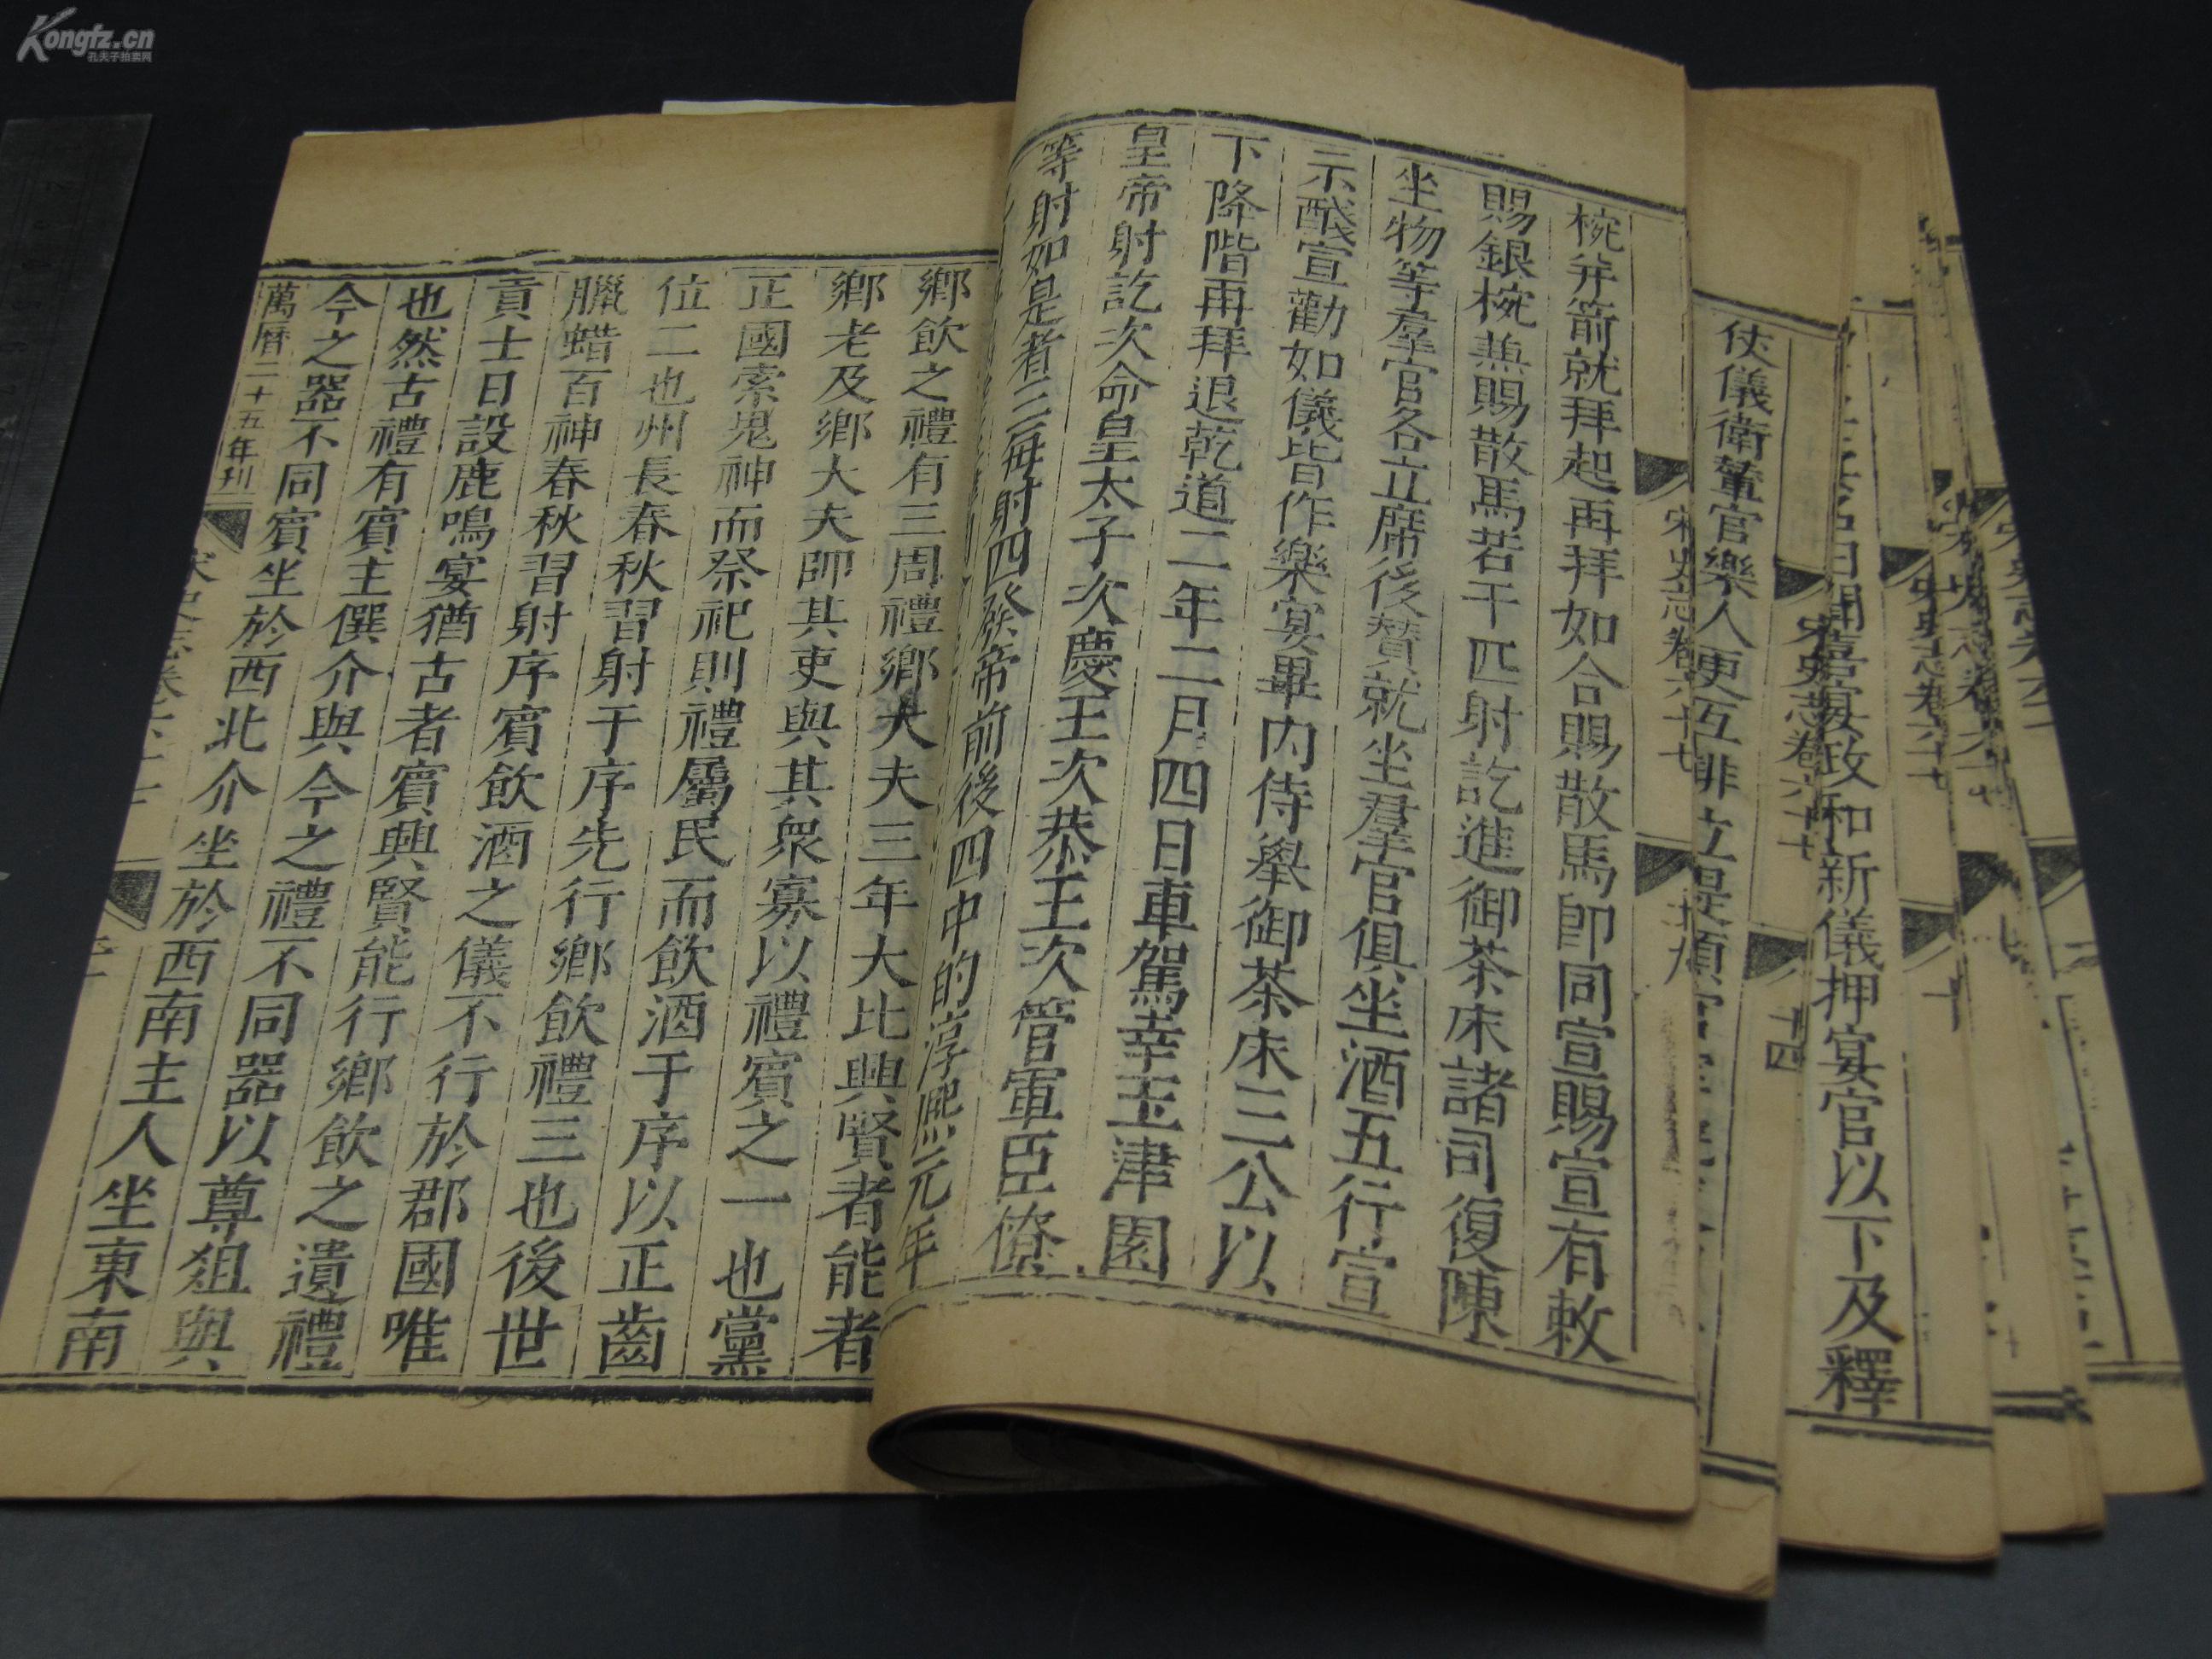 Kongfz.cn
孔夫子拍卖网
椀并箭就拜起再拜如合賜散馬卽同宣賜宣有敕
賜銀椀兼賜散馬若干匹射訖進御茶床諸司復陳
坐物等羣官各立席後贊就坐羣官俱坐酒五行宣
示醆宣勸如儀皆作樂宴畢内侍舉御茶床三公以
下降階再拜退乾道二年二月四日車駕幸玉津園
皇帝射訖次命皇太子次慶王次恭王次管軍臣僚
等射如是者三每射四發帝前後四中的淳熙元年
鄉飲之禮有三周禮鄉大夫三年大比興賢者能者
鄉老及鄉大夫帥其吏與其衆寡以禮賓之一也黨
正國索鬼神而祭祀則禮屬民而飲酒于序以正齒
位二也州長春秋習射于序先行鄉飲禮三也後世
臘蜡百神春秋習射序賓飲酒之儀不行於郡國唯
貢士日設鹿鳴宴猶古者賓興賢能行鄉飲之遺禮
也然古禮有賓主僎介與今之禮不同器以尊俎與
今之器不同賓坐於西北介坐於西南主人坐東南
萬曆二十五年刊
宋史志卷六十七
宋史志卷六十七
十四
仗儀衛輦官樂人更互排立
宴政和新儀押宴官以下及釋
宋史志卷六十七